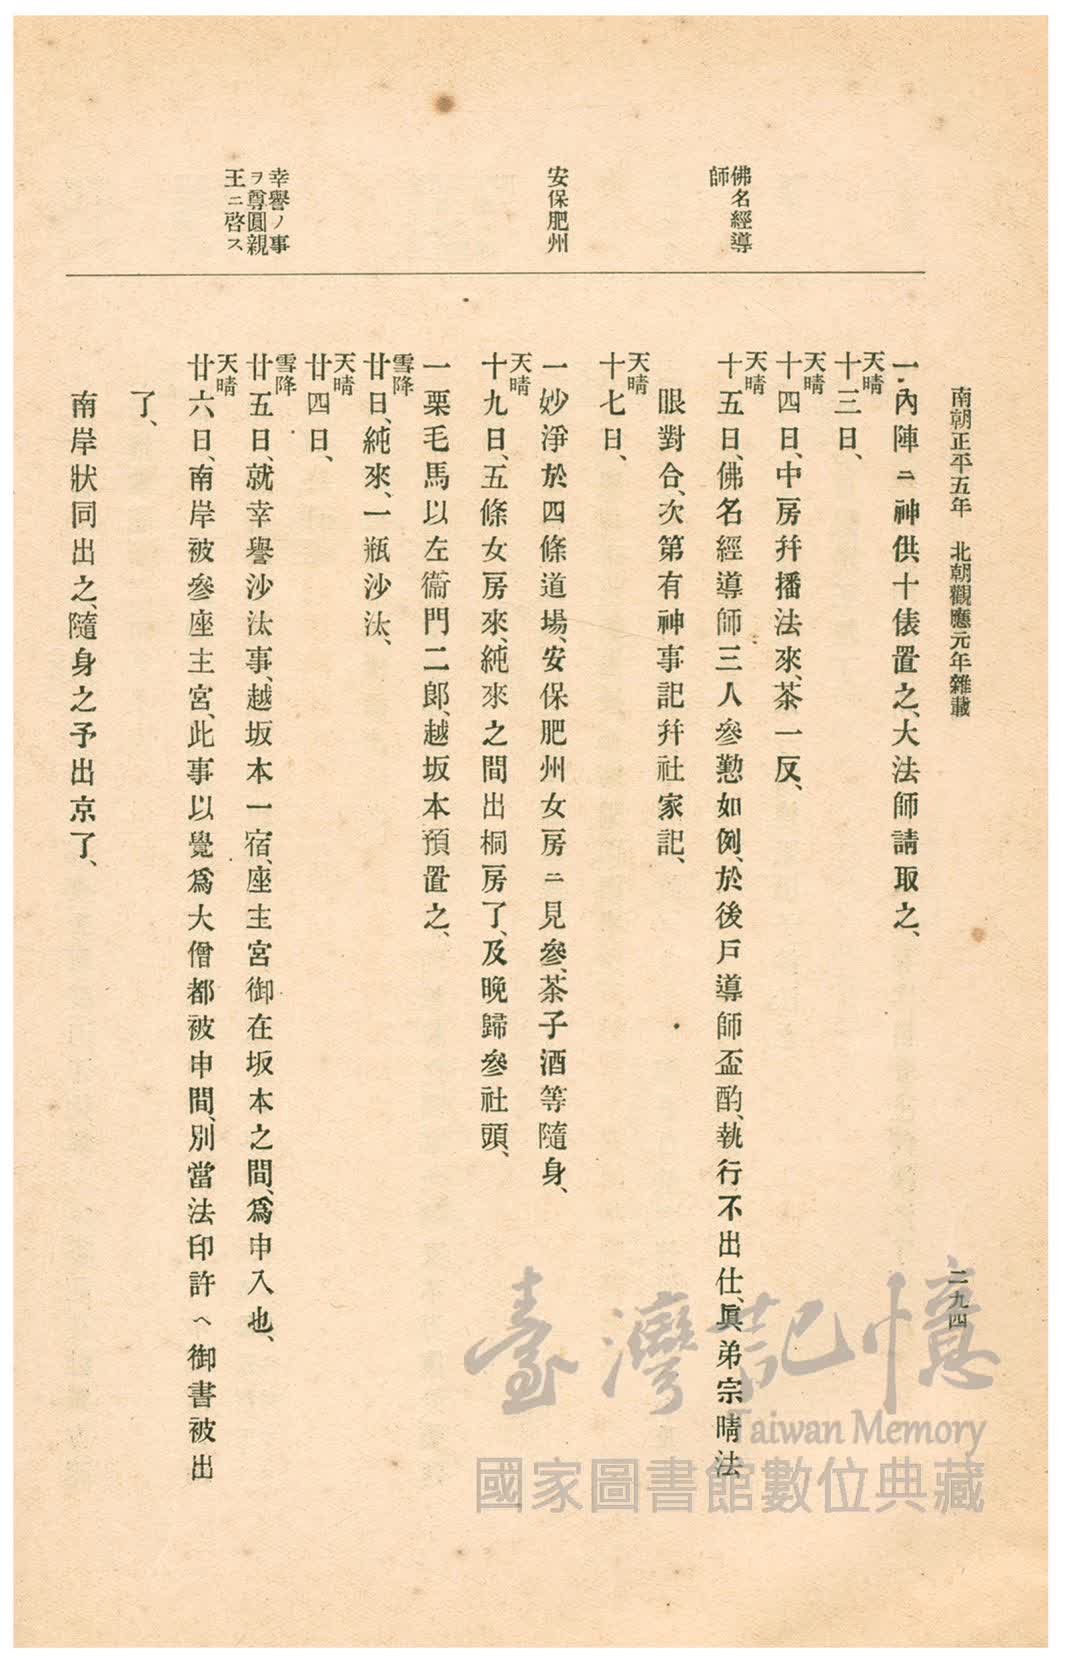 南朝正平五年　北朝觀應元年雜載
二九四
佛名經導
師
安保肥州
幸譽ノ事
ヲ尊圓親
王ニ啓ス
一、內陣ニ神供十俵置之、大法師請取之、
天晴
十三日、
天晴
十四日、中房幷播法來、茶一反、
天晴
十五日、佛名經導師三人參懃如例、於後戶導師盃酌、執行不出仕、眞弟宗晴法
眼對合、次第有神事記幷社家記、
天晴
十七日、
一妙淨於四條道場、安保肥州女房ニ見參、茶子酒等隨身、
天晴
十九日、五條女房來、純來之間出桐房了、及晚歸參社頭、
一栗毛馬以左衞門二郞、越坂本預置之、
雪降
廿日、純來、一瓶沙汰、
天晴
廿四日、
雪降
廿五日、就幸譽沙汰事、越坂本一宿、座主宮御在坂本之間、爲申入也、
天晴
廿六日、南岸被參座主宮、此事以覺爲大僧都被申間、別當法印許ヘ御書被出
了、
南岸狀同出之、隨身之予出京了、
臺灣記憶
Taiwan Memory
國家圖書館數位典藏